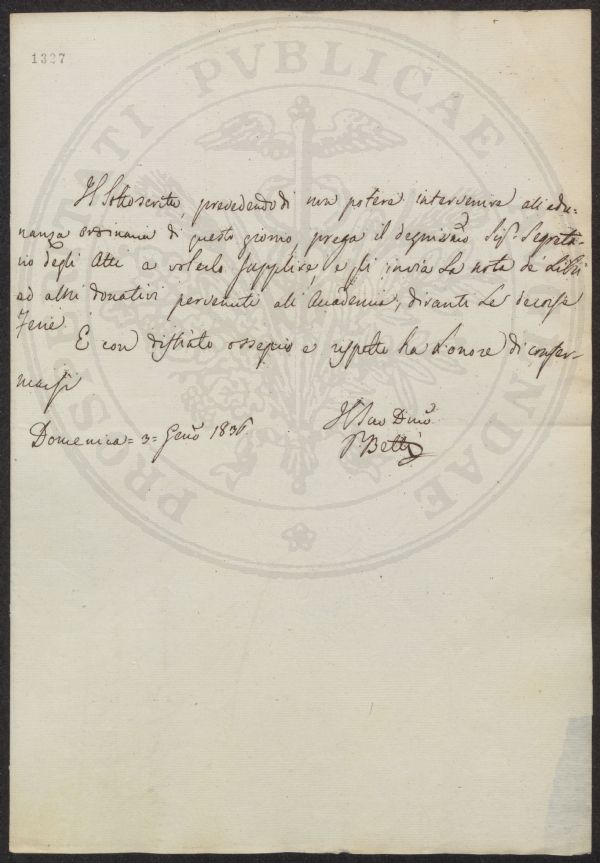 1327
PROSPERITATI PVBLICAE AVGENDAE
Il Sottoscritto, prevedendo di non potere intervenire all'adu-
nanza ordinaria di questo giorno, prega il degnissimo Sigr. Segreta-
rio degli Atti a volerlo supplire, e gli invia la nota de Libri
ed altri donativi pervenuti all'Accademia, duranti le decorse
Ferie.
E con distinto ossequio e rispetto ha l'onore di confer-
marsi
Domenica = 3 = Geno 1836
Il Suo Dmo.
P. Betti